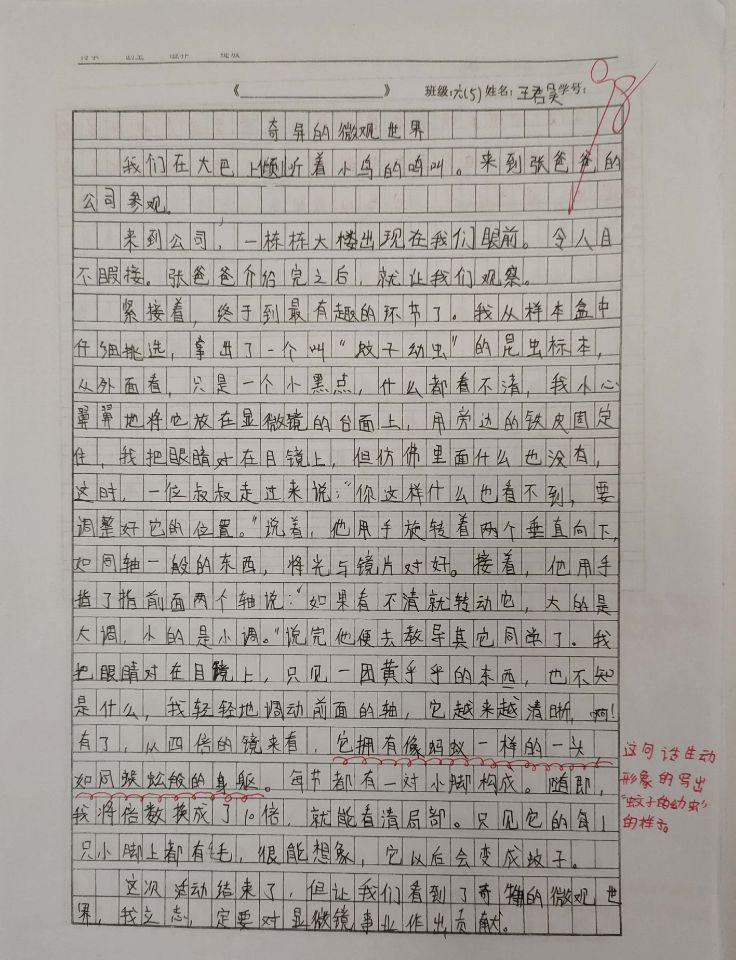 《 》 班级:六(5) 姓名:王君昊 学号:
98
奇异的微观世界
我们在大巴上倾听着小鸟的鸣叫。来到张爸爸的
公司参观。
来到公司,一栋栋大楼出现在我们眼前。令人目
不暇接。张爸爸介绍完之后,就让我们观察。
紧接着,终于到最有趣的环节了。我从样本盒中
仔细挑选,拿出了一个叫“蚊子幼虫”的昆虫标本,
从外面看,只是一个小黑点,什么都看不清,我小心
翼翼地将它放在显微镜的台面上,用旁边的铁皮固定
住,我把眼睛对在目镜上,但仿佛里面什么也没有,
这时,一位叔叔走过来说:“你这样什么也看不到,要
调整好它的位置。”说着,他用手旋转着两个垂直向下,
如同轴一般的东西,将光与镜片对好。接着,他用手
指了指前面两个轴说:“如果看不清就转动它,大的是
大调,小的是小调。”说完他便去教导其它同学了。我
把眼睛对在目镜上,只见一团黄乎乎的东西,也不知
是什么,我轻轻地调动前面的轴,它越来越清晰,啊!
有了,从四倍的镜来看,它拥有像蚂蚁一样的一头,
如同蜈蚣般的身躯。每节都有一对小脚构成。随即,
我将倍数换成了10倍,就能看清局部。只见它的每1
只小脚上都有毛,很能想象,它以后会变成蚊子。
这次活动结束了,但让我们看到了奇特的微观世
界,我立志,定要对显微镜事业作出贡献。
这句话生动
形象的写出
“蚊子的幼虫”
的样子。